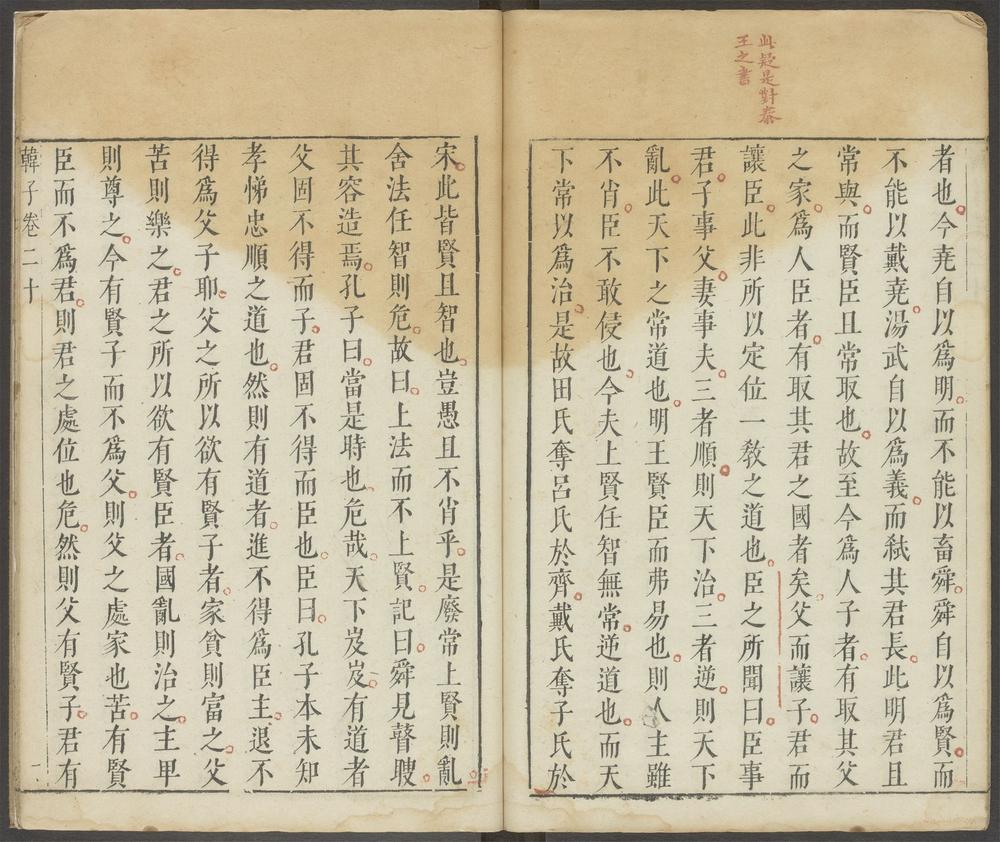 此疑是對秦
王之書
者也今堯自以爲明而不能以畜舜舜自以爲賢而
不能以戴堯湯武自以爲義而弑其君長此明君且
常與而賢臣且常取也故至今爲人子者有取其父
之家爲人臣者有取其君之國者矣父而讓子君而
讓臣此非所以定位一敎之道也臣之所聞曰臣事
君子事父妻事夫三者順則天下治三者逆則天下
亂此天下之常道也明王賢臣而弗易也則人主雖
不肖臣不敢侵也今夫上賢任智無常逆道也而天
下常以爲治是故田氏奪呂氏於齊戴氏奪子氏於
宋此皆賢且智也豈愚且不肖乎是廢常上賢則亂
舍法任智則危故曰上法而不上賢記曰舜見瞽瞍
其容造焉孔子曰當是時也危哉天下岌岌有道者
父固不得而子君固不得而臣也臣曰孔子本未知
孝悌忠順之道也然則有道者進不得爲臣主退不
得爲父子耶父之所以欲有賢子者家貧則富之父
苦則樂之君之所以欲有賢臣者國亂則治之主卑
則尊之今有賢子而不爲父則父之處家也苦有賢
臣而不爲君則君之處位也危然則父有賢子君有
韓子卷二十